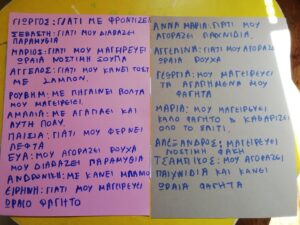 ΓΙΩΡΓΟΣ: ΓΙΑΤΙ ΜΕ ΦΡΟΝΤΙΖΕΙ
ΣΕΒΑΣΤΗ: ΓΙΑΤΙ ΜΟΥ ΔΙΑΒΑΖΕΙ
ΠΑΡΑΜΥΘΙΑ
ΜΑΡΙΟΣ: ΓΙΑΤΙ ΜΟΥ ΜΑΓΕΙΡΕΥΕΙ
ΩΡΑΙΑ ΝΟΣΤΙΜΗ ΣΟΥΠΑ
ΑΓΓΕΛΟΣ: ΓΙΑΤΙ ΜΟΥ ΚΑΝΕΙ ΤΟΣΤ
ΜΕ ΣΑΛΑΜΟΝ.
ΡΟΥΒΗΜ: ΜΕ ΠΗΓΑΙΝΕΙ ΒΟΛΤΑ
ΜΟΥ ΜΑΓΕΙΡΕΥΕΙ.
ΑΜΑΛΙΑ: ΜΕ ΑΓΑΠΑΕΙ ΚΑΙ
ΑΥΤΗ ΠΟΛΥ.
ΠΑΙΣΙΑ: ΓΙΑΤΙ ΜΟΥ ΦΕΡΝΕΙ
ΛΕΦΤΑ
ΕΥΑ: ΜΟΥ ΑΓΟΡΑΖΕΙ ΡΟΥΧΑ
ΜΟΥ ΔΙΑΒΑΖΕΙ ΠΑΡΑΜΥΘΙΑ
ΑΝΔΡΩΝΙΚΗ: ΜΕ ΚΑΝΕΙ ΜΠΑΝΙΟ
ΕΙΡΗΝΗ: ΓΙΑΤΙ ΜΟΥ ΜΑΓΕΙΡΕΥΕΙ
ΩΡΑΙΟ ΦΑΓΗΤΟ
ΑΝΝΑ ΜΑΡΙΑ: ΓΙΑΤΙ ΜΟΥ
ΑΓΟΡΑΖΕΙ ΠΑΙΧΝΙΔΙΑ.
ΑΓΓΕΛΙΝΑ: ΓΙΑΤΙ ΜΟΥ ΑΓΟΡΑΖΕΙ
ΩΡΑΙΑ ΡΟΥΧΑ
ΓΕΩΡΓΙΑ: ΓΙΑΤΙ ΜΟΥ ΜΑΓΕΙΡΕΥΕΙ
ΤΑ ΑΓΑΠΗΜΕΝΑ ΜΟΥ
ΦΑΓΗΤΑ
ΜΑΡΙΑ: ΜΟΥ ΜΑΓΕΙΡΕΥΕΙ
ΚΑΛΟ ΦΑΓΗΤΟ & ΚΑΘΑΡΙΖΕΙ
ΟΛΟ ΤΟ ΣΠΙΤΙ.
ΑΛΕΞΑΝΔΡΟΣ: ΜΑΓΕΙΡΕΥΕΙ
ΝΟΣΤΙΜΗ ΦΑΚΗ
ΤΣΑΜΠΙΚΟΣ: ΜΟΥ ΑΓΟΡΑΖΕΙ
ΠΑΙΧΝΙΔΙΑ ΚΑΙ ΚΑΝΕΙ
ΩΡΑΙΑ ΦΑΓΗΤΑ